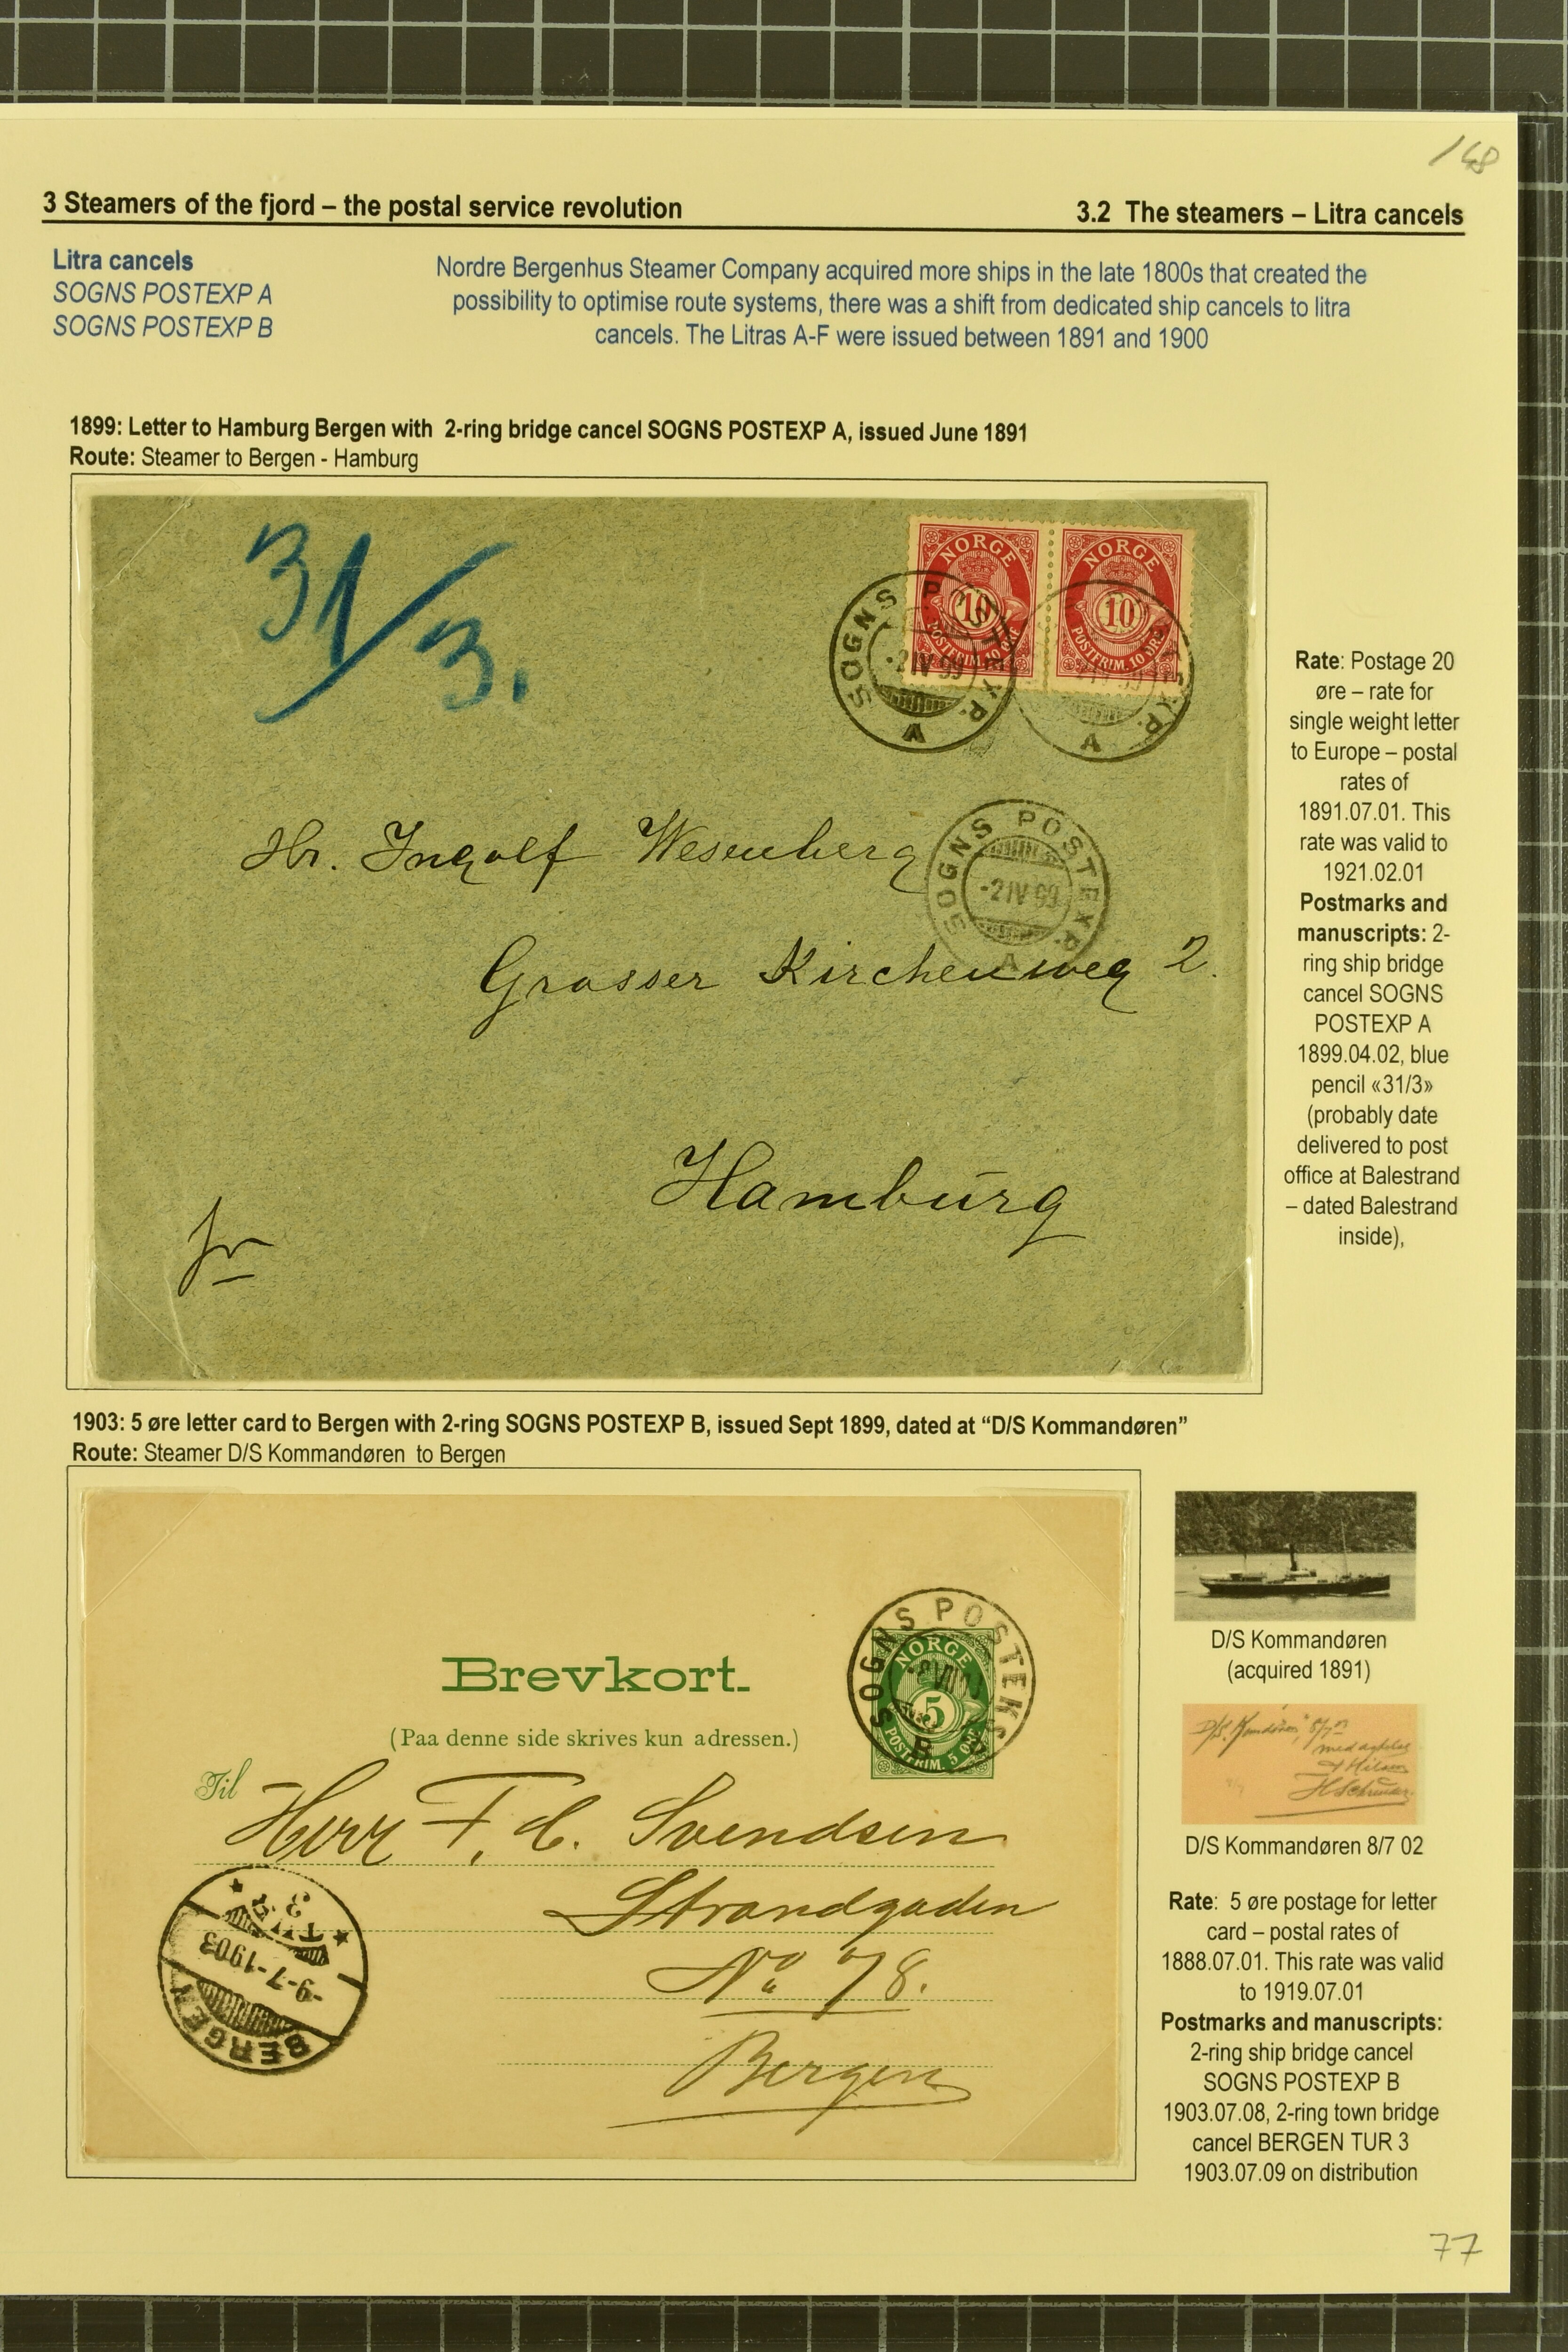 148
3 Steamers of the fjord – the postal service revolution
3.2 The steamers – Litra cancels
Litra cancels
SOGNS POSTEXP A
SOGNS POSTEXP B
Nordre Bergenhus Steamer Company acquired more ships in the late 1800s that created the
possibility to optimise route systems, there was a shift from dedicated ship cancels to litra
cancels. The Litras A-F were issued between 1891 and 1900
1899: Letter to Hamburg Bergen with 2-ring bridge cancel SOGNS POSTEXP A, issued June 1891
Route: Steamer to Bergen - Hamburg
31/3.
NORGE
10
POSTFRIM. 10 ØRE
NORGE
10
POSTFRIM. 10 ØRE
SOGNS POSTEXP.
-2 IV 99
A
EXP.
A
SOGNS POSTEXP.
-2 IV 99
A
Hr. Ingolf Wesenberg
Grosser Kirchenweg 2.
Hamburg
fr
Rate: Postage 20
øre – rate for
single weight letter
to Europe – postal
rates of
1891.07.01. This
rate was valid to
1921.02.01
Postmarks and
manuscripts: 2-
ring ship bridge
cancel SOGNS
POSTEXP A
1899.04.02, blue
pencil «31/3»
(probably date
delivered to post
office at Balestrand
– dated Balestrand
inside),
1903: 5 øre letter card to Bergen with 2-ring SOGNS POSTEXP B, issued Sept 1899, dated at “D/S Kommandøren”
Route: Steamer D/S Kommandøren to Bergen
Brevkort.
(Paa denne side skrives kun adressen.)
NORGE
5
POSTFRIM. 5 ØRE
SOGNS POSTEKSP
B
Til
Herr F. C. Svendsen
Strandgaden
No 78.
Bergen
TUR
3
-9-7-1903
BERGEN
D/S Kommandøren
(acquired 1891)
D/S Kommandøren 8/7 02
Rate: 5 øre postage for letter
card – postal rates of
1888.07.01. This rate was valid
to 1919.07.01
Postmarks and manuscripts:
2-ring ship bridge cancel
SOGNS POSTEXP B
1903.07.08, 2-ring town bridge
cancel BERGEN TUR 3
1903.07.09 on distribution
77